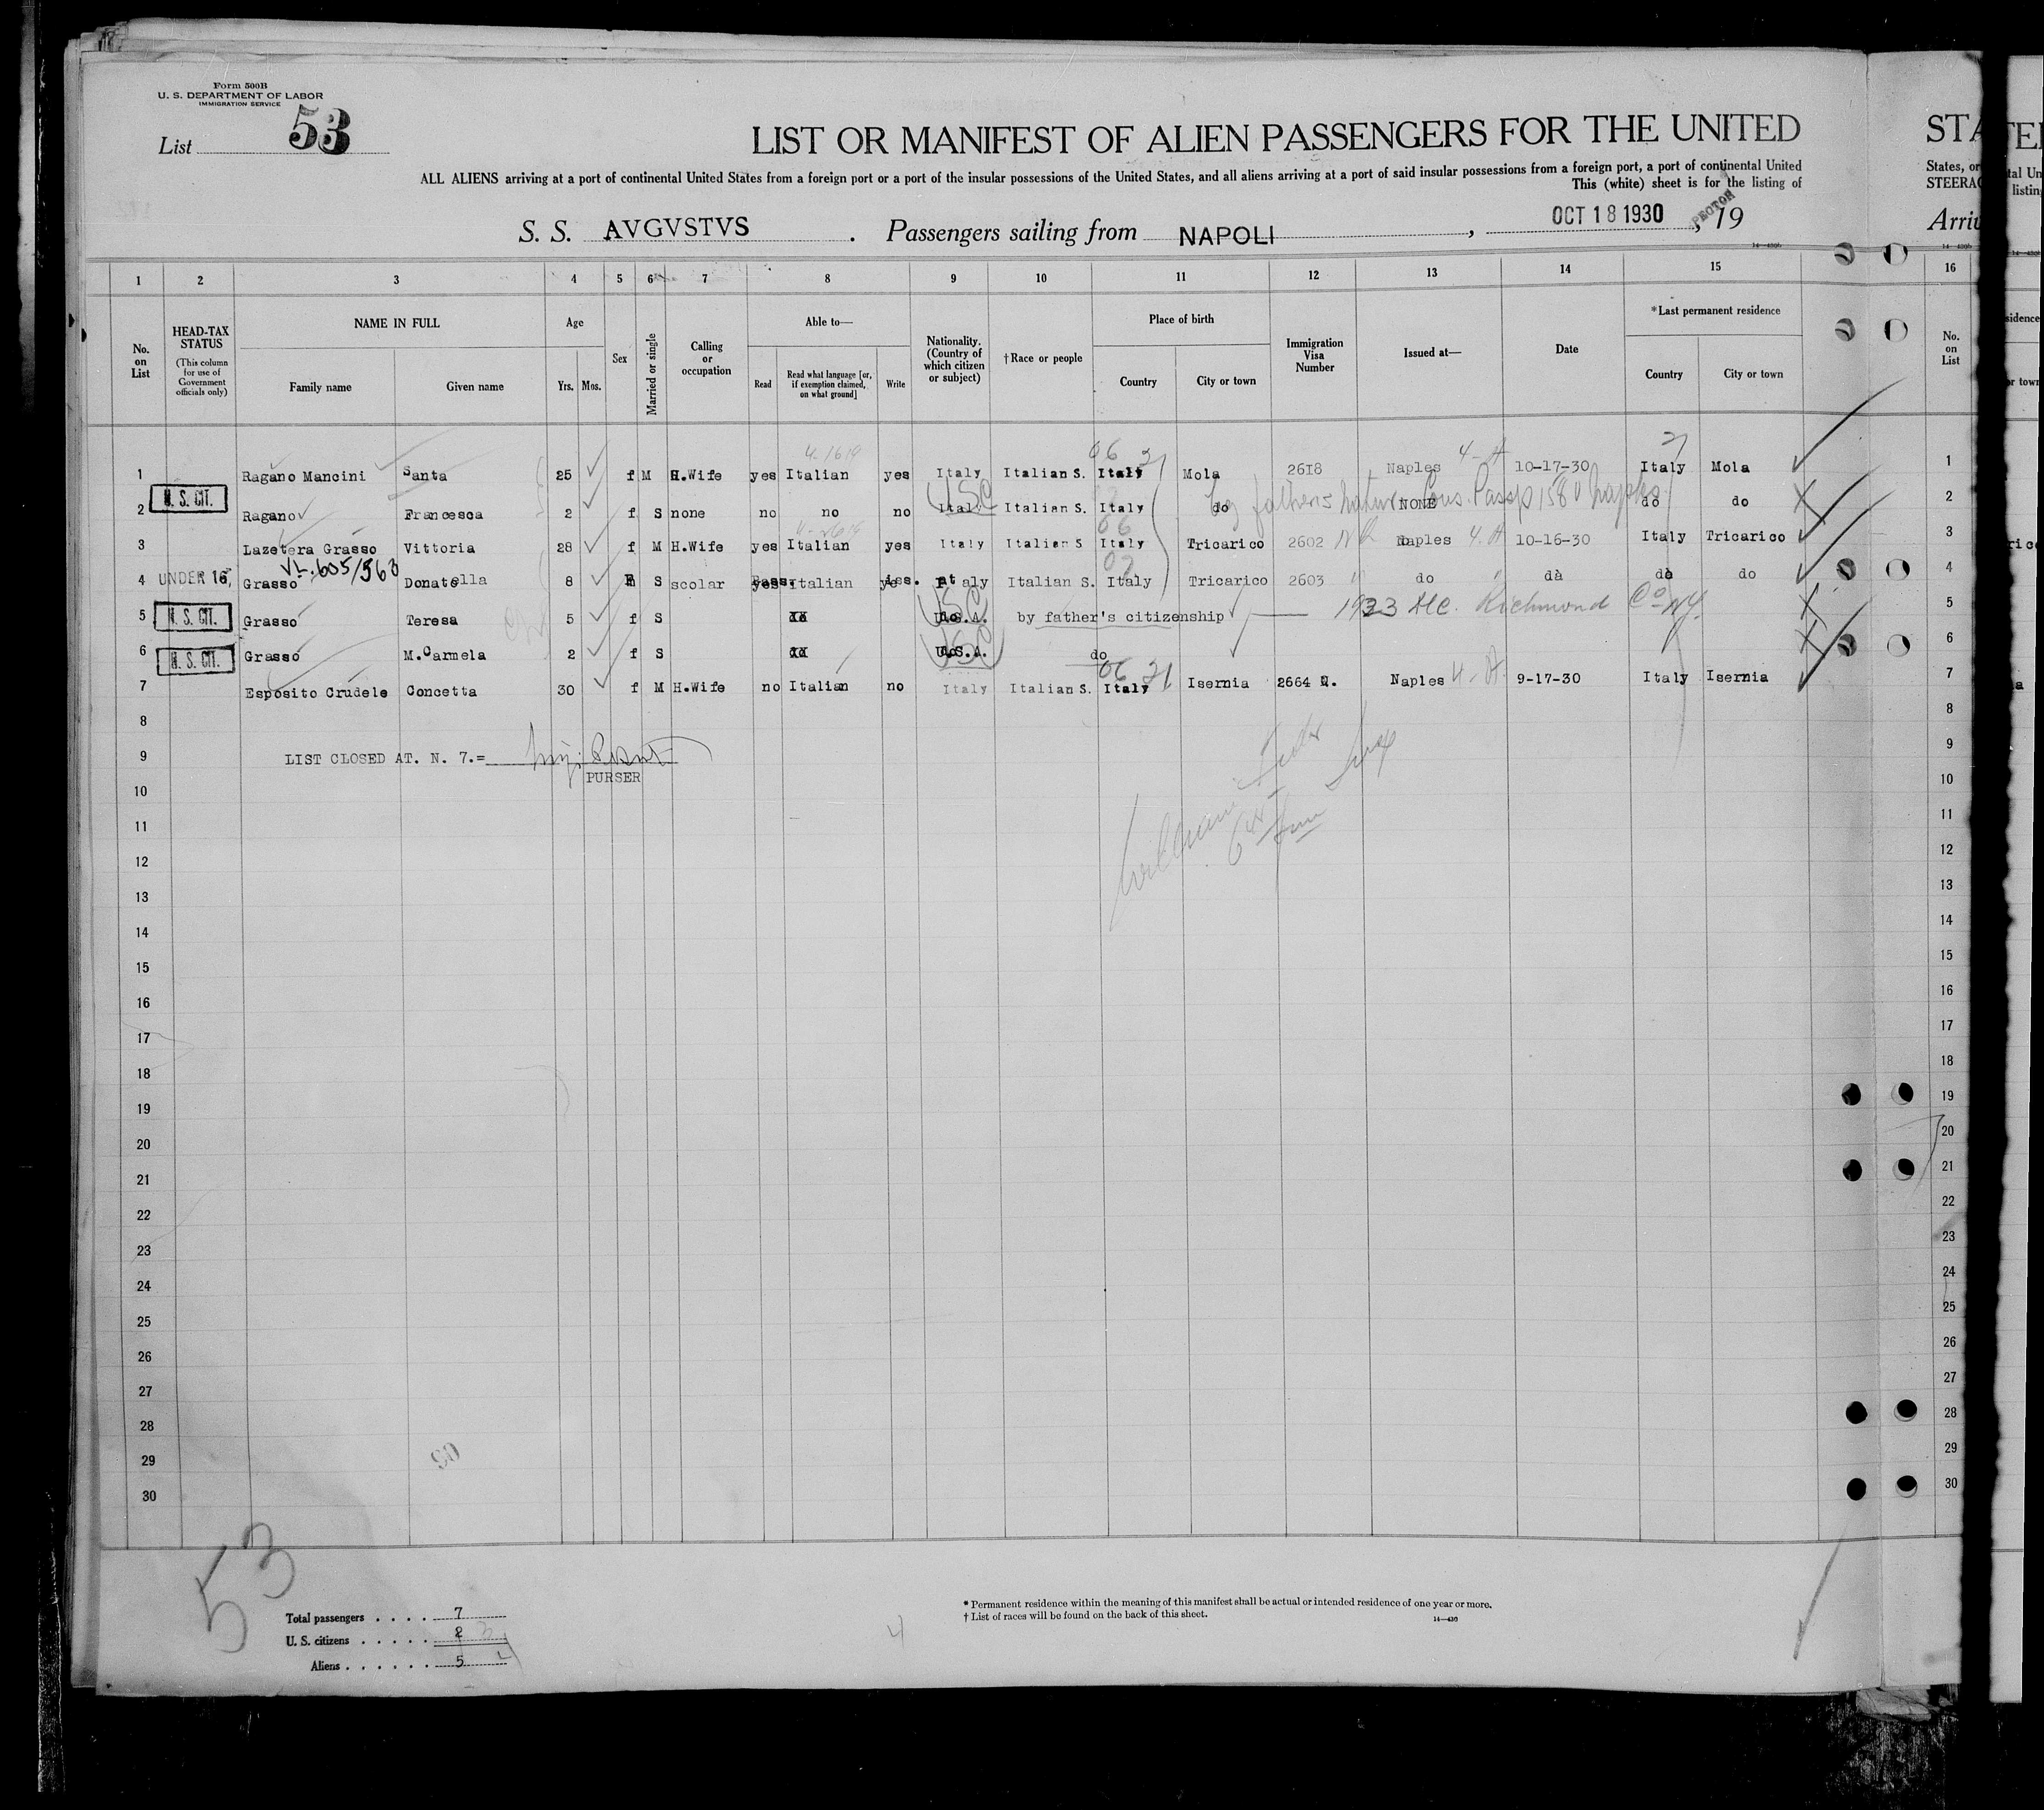 Form 500B
U. S. DEPARTMENT OF LABOR
IMMIGRATION SERVICE
List 53
LIST OR MANIFEST OF ALIEN PASSENGERS FOR THE UNITED
STA
ALL ALIENS arriving at a port of continental United States from a foreign port or a port of the insular possessions of the United States, and all aliens arriving at a port of said insular possessions from a foreign port, a port of continental United
States, or
This (white) sheet is for the listing of
STEERAG
S. S. AVGVSTVS . Passengers sailing from NAPOLI , OCT 18 1930 , 19
Arriv
1 2 3 4 5 6 7 8 9 10 11 12 13 14 15 16
No. on List
HEAD-TAX STATUS
(This column for use of Government officials only)
NAME IN FULL
Family name Given name
Age
Yrs. Mos.
Sex
Married or single
Calling or occupation
Able to—
Read
Read what language [or, if exemption claimed, on what ground]
Write
Nationality. (Country of which citizen or subject)
†Race or people
Place of birth
Country City or town
Immigration Visa Number
Issued at—
Date
*Last permanent residence
Country City or town
No. on List
1 Ragano Mancini Santa 25 f M H.Wife yes Italian yes Italy Italian S. Italy Mola 2618 Naples 4-A 10-17-30 Italy Mola 1
2 U. S. CIT. Ragano Francesca 2 f S none no no no Italy USC Italian S. Italy do NONE do do 2
3 Lazetera Grasso Vittoria 28 f M H.Wife yes Italian yes Italy Italian S Italy Tricarico 2602 Naples 4-A 10-16-30 Italy Tricarico 3
VL.605/563
4 UNDER 16 Grasso Donatella 8 S scolar yes Italian Italy Italian S. Italy Tricarico 2603 do dà do do 4
5 U. S. CIT. Grasso Teresa 5 f S U.S.A. USC by father's citizenship Richmond Co NY. 5
6 U. S. CIT. Grasso M.Carmela 2 f S U.S.A. USC do 6
7 Esposito Crudele Concetta 30 f M H.Wife no Italian no Italy Italian S. Italy Isernia 2664 Q. Naples 4-A 9-17-30 Italy Isernia 7
8 8
9 LIST CLOSED AT. N. 7.= 9
PURSER
10 10
11 11
12 12
13 13
14 14
15 15
16 16
17 17
18 18
19 19
20 20
21 21
22 22
23 23
24 24
25 25
26 26
27 27
28 28
29 29
30 30
53
Total passengers . . . . 7
U. S. citizens . . . . . 2 3
Aliens . . . . . . 5 4
4
* Permanent residence within the meaning of this manifest shall be actual or intended residence of one year or more.
† List of races will be found on the back of this sheet.
14—430